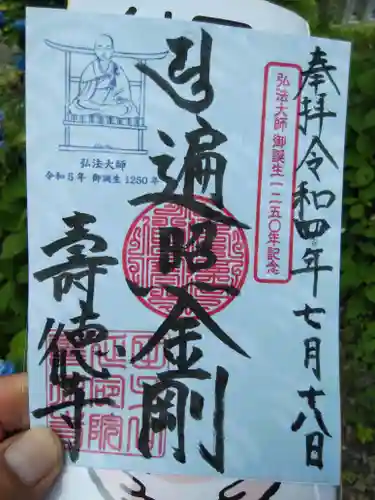 奉拝 令和四年七月十八日
弘法大師 御誕生一二五〇年記念
遍昭金剛
弘法大師
令和5年 御誕生1250年
壽徳寺